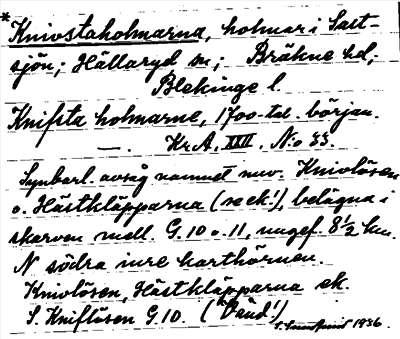 *Knivstaholmarna, holmar i Salt-
sjön; Hällaryd sn; Bräkne hd;
Blekinge l.
Knifsta holmarne, 1700-td. början.
—. Kr.A. XXII. No 33.
Synbarl. avsåg namnet nuv. Knivlösen
o. Hästkläpparna (se ek!), belägna i
skarven mell. G. 10 o. 11, ungef. 8½ km.
N södra inre karthörnen.
Knivlösen, Hästkläpparna ek.
S. Kniflösen G.10.
1936.